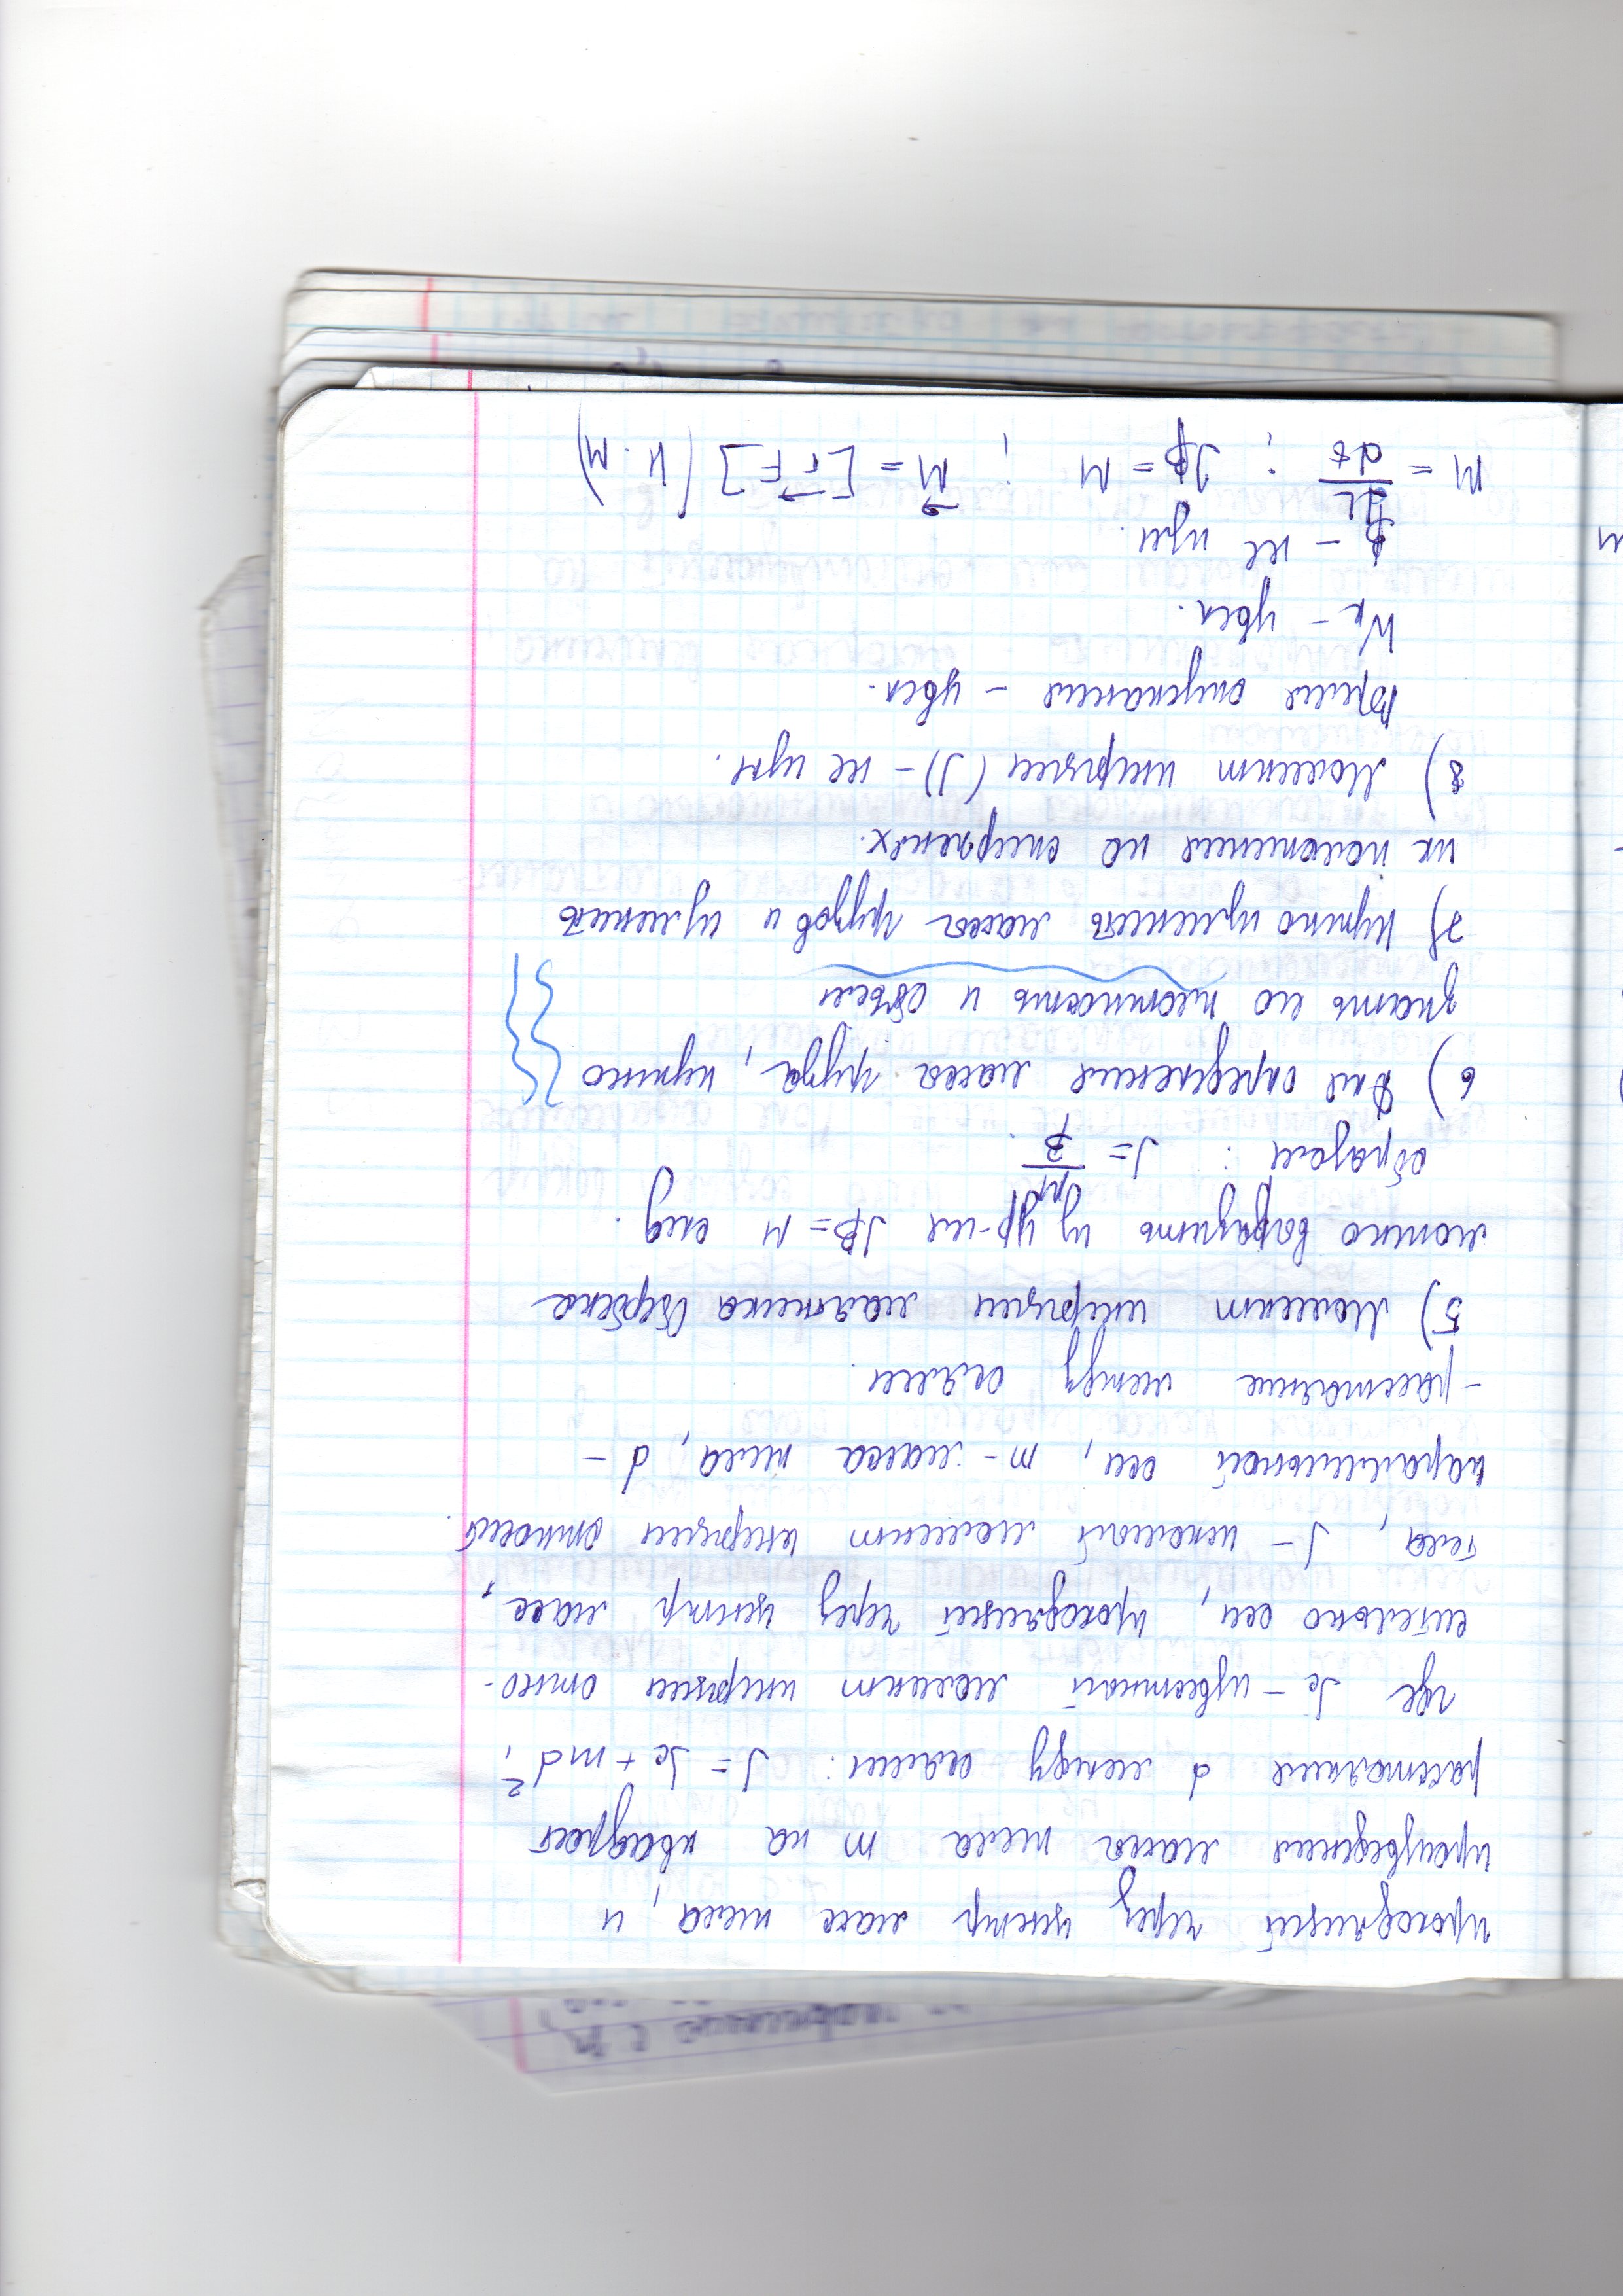 проходящей через центр масс тела, и
произведения массы тела m на квадрат
расстояния d между осями: J = Jc + md²,
где Jc – известный момент инерции отно-
сительно оси, проходящей через центр масс,
тела, J – искомый момент инерции относит.
параллельной оси, m – масса тела, d –
– расстояние между осями.
5) Момент инерции маятника Обербека
можно выразить из ур-ия Jβ = M след.
образом: J = M/β.
6) Для определения массы груза, нужно
знать его плотность и объем
7) Нужно изменить массы грузов и изменить
их положения на стержнях.
8) Момент инерции (J) – не изм.
Время опускания – увел.
Wк – увел.
β – не изм.
M = dL/dt ; Jβ = M ; M⃗ = [r⃗ F⃗] (Н·м)